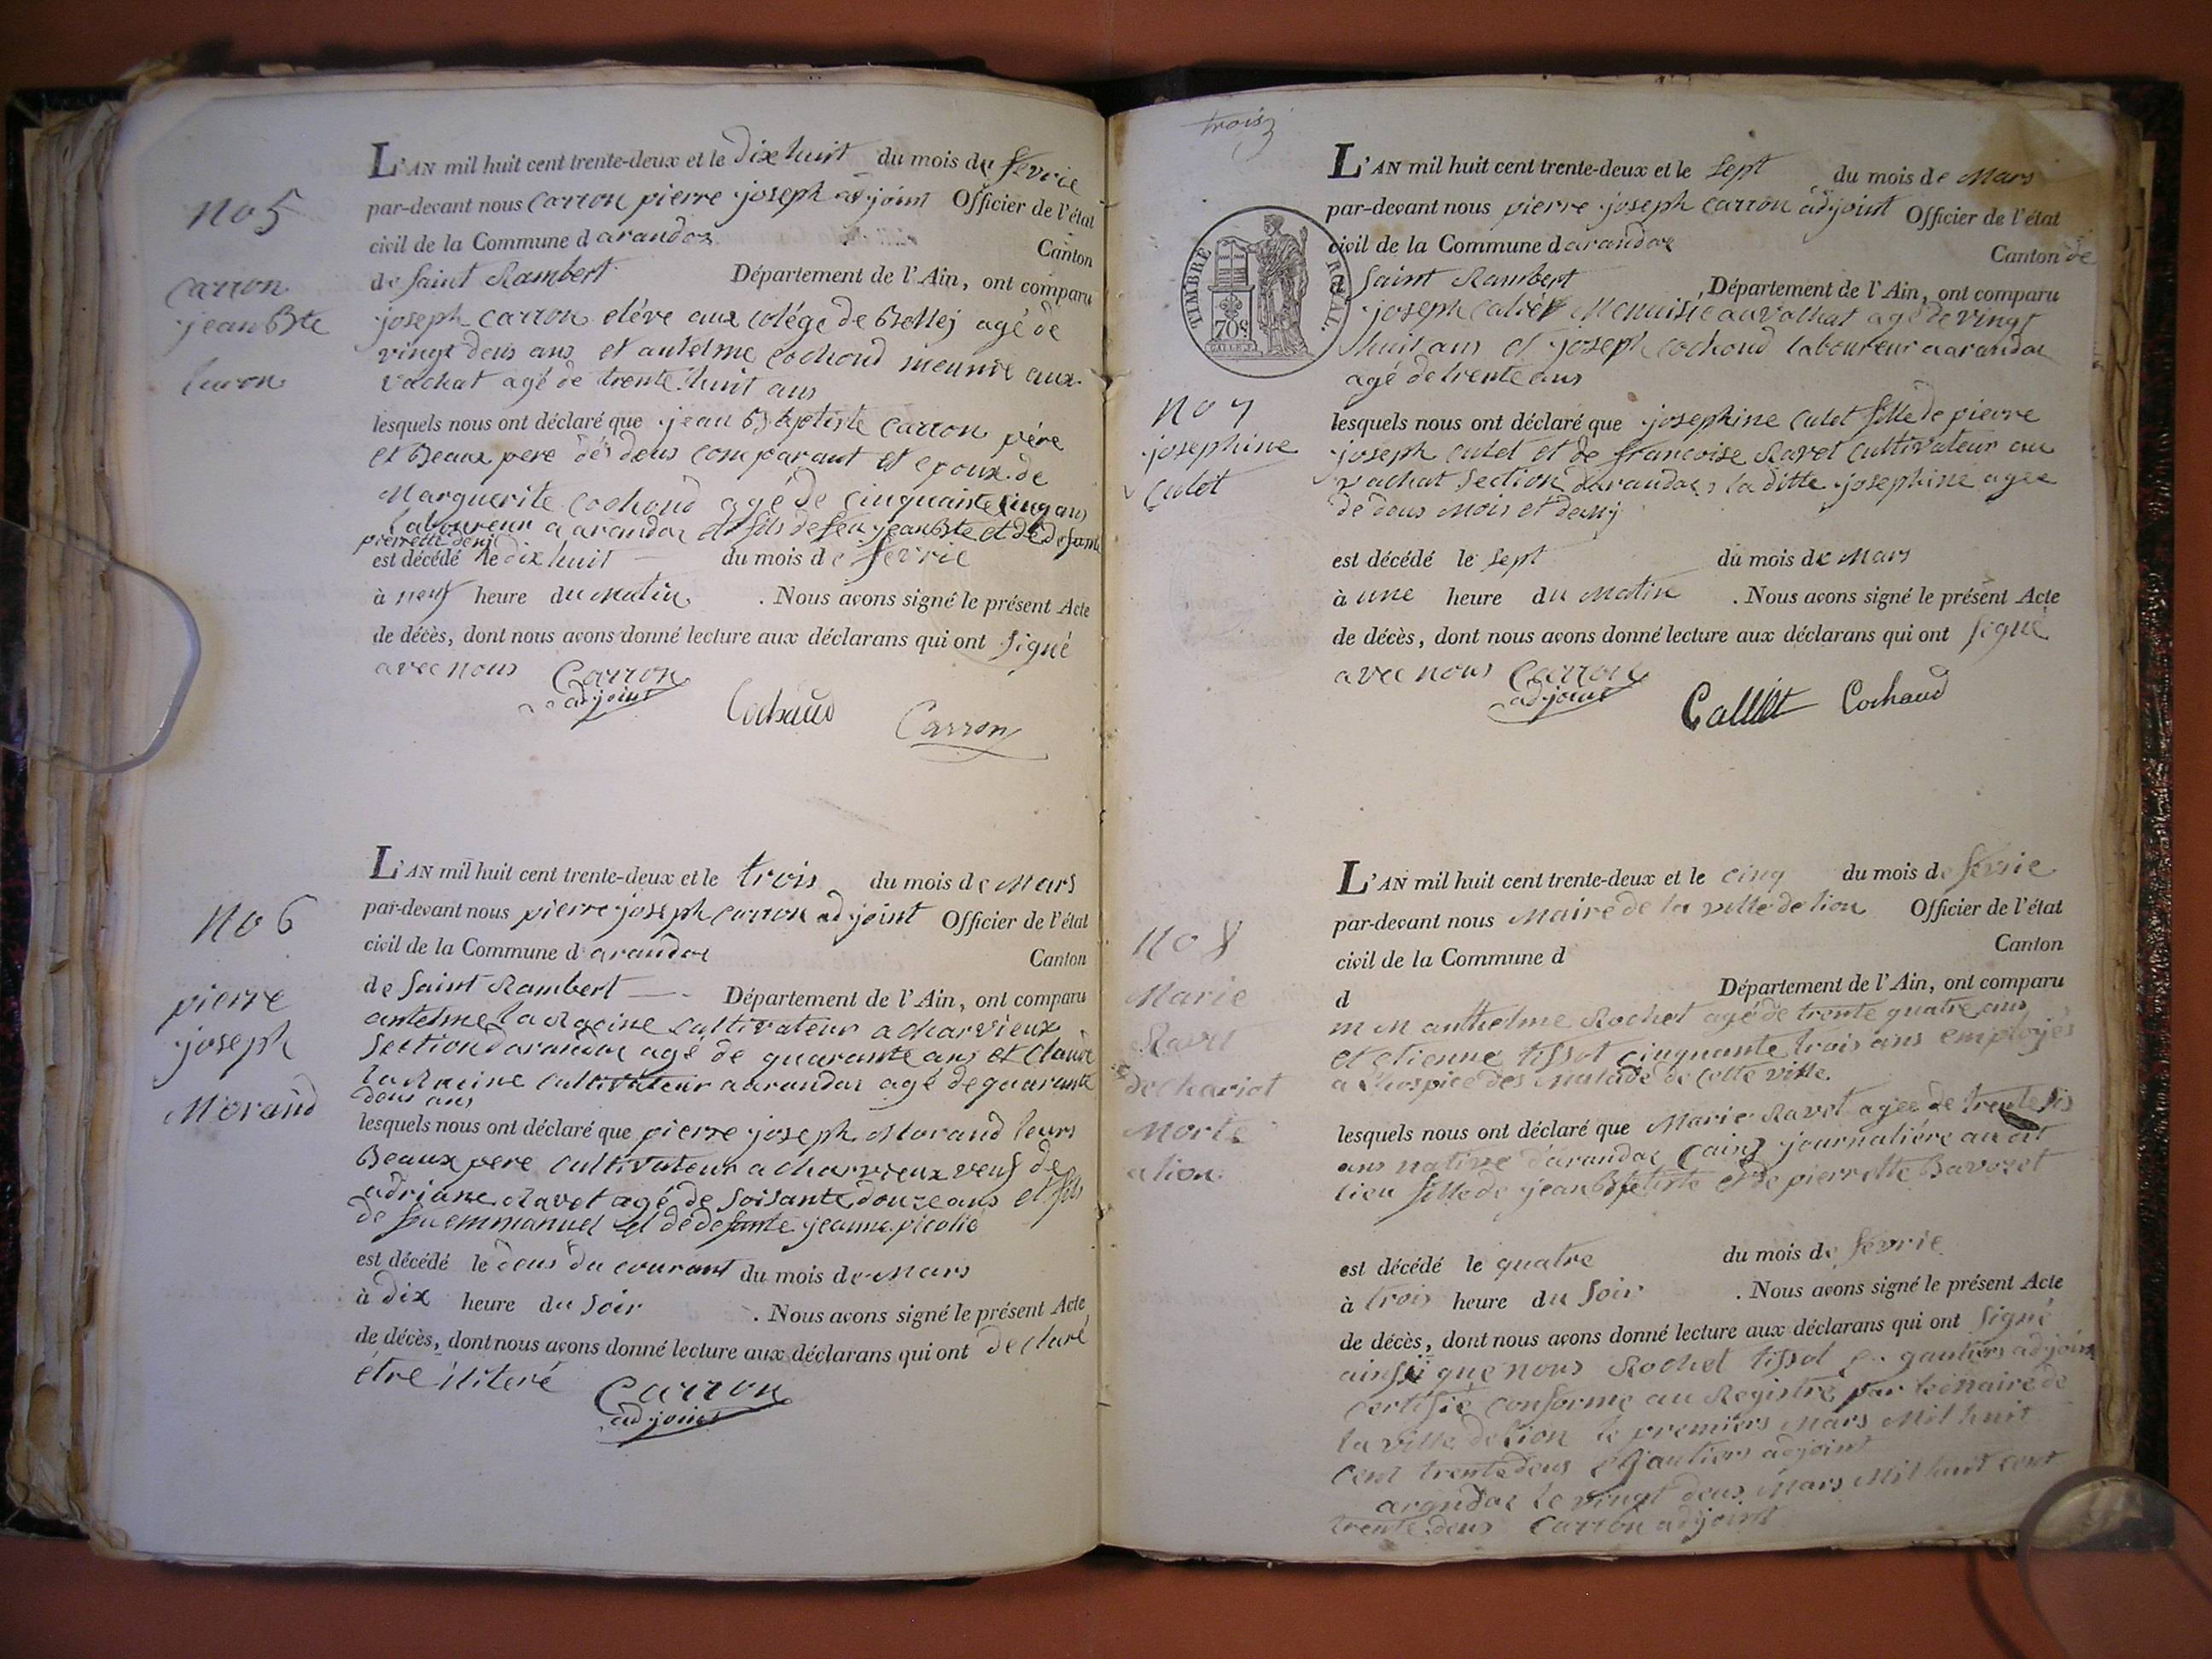 no 5
carron
jean Bte
L'AN mil huit cent trente-deux et le dixhuit du mois de fevrie
par-devant nous Carron pierre joseph adjoint Officier de l'état
civil de la Commune d arandas Canton
de Saint Rambert Département de l'Ain, ont comparu
joseph Carron eléve aux colége de Bellej agé de
vingt deus ans et antelme cochoud meunié aux
vachat agé de trente huit ans
lesquels nous ont déclaré que jean Baptiste Carron pére
et Beaux pere dés deus comparant et epoux de
Marguerite cochoud agé de Cinquante Cinq ans
laboureur a arandas et fils de feu jean Bte et de defante
pierrette denj
est décédé le dix huit du mois de fevrie
à neuf heure du Matin . Nous avons signé le présent Acte
de décès, dont nous avons donné lecture aux déclarans qui ont signé
avec nous Carron
adjoint
Cochaud Carron
no 6
pierre
joseph
Morand
L'AN mil huit cent trente-deux et le trois du mois de Mars
par-devant nous pierre joseph Carron adjoint Officier de l'état
civil de la Commune d arandas Canton
de Saint Rambert Département de l'Ain, ont comparu
antelme la Racine Cultivateur a charvieux
Section darandas agé de quarante ans et Claude
la Racine Cultivateur a arandas agé de quarante
deus ans
lesquels nous ont déclaré que pierre joseph Morand leurs
Beaux pere Cultivateur a charvieux veuf de
adriane Ravet agé de Soisante douze ans et fils
de feu emmanuel et de defante jeanne picolié
est décédé le deus du courant du mois de Mars
à dix heure du Soir . Nous avons signé le présent Acte
de décès, dont nous avons donné lecture aux déclarans qui ont declaré
étre iliteré Carron
adjoint
trois
TIMBRE ROYAL.
70c
L'AN mil huit cent trente-deux et le sept du mois de Mars
par-devant nous pierre joseph Carron adjoint Officier de l'état
civil de la Commune d arandas Canton de
Saint Rambert Département de l'Ain, ont comparu
joseph Caliet Menuisié au vachat agé de vingt
huit ans et joseph cochoud laboureur a arandas
agé de trente ans
no 7
josephine
Culet
lesquels nous ont déclaré que josephine Culet fille de pierre
joseph Culet et de francoise Ravet Cultivateur au
vachat Section darandas, la ditte josephine agée
de deus Mois et demj
est décédé le sept du mois de Mars
à une heure du Matin . Nous avons signé le présent Acte
de décès, dont nous avons donné lecture aux déclarans qui ont signé
avec nous Carron
adjoint
Calliet Cochaud
no 8
Marie
Ravet
Morte
a lion
L'AN mil huit cent trente-deux et le cinq du mois de fevrie
par-devant nous Maire de la ville de lion Officier de l'état
civil de la Commune d Canton
d Département de l'Ain, ont comparu
m M anthelme Rochet agé de trente quatre ans
et etienne tissot Cinquante trois ans employés
a l'hospice des Malade de cette ville.
lesquels nous ont déclaré que Marie Ravet agée de trente sis
ans native d'arandas (ain) journaliére au dit
lieu fille de jean Baptiste et de pierrette Bavozet
est décédé le quatre du mois de fevrie
à trois heure du Soir . Nous avons signé le présent Acte
de décès, dont nous avons donné lecture aux déclarans qui ont signé
ainsi que nous Rochet tissot gautiers adjoint
certifié conforme au Registre par le maire de
la ville de lion le premiers Mars Mil huit
Cent trente deus gautiers adjoint
arandas le vingt deus Mars Mil huit cent
trente deus Carron adjoint